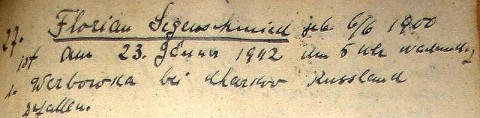 27. Florian Segenschmied geb 6/6 1900
ist am 23. Jänner 1942 um 5 Uhr
in Werbowka bei Charkov Russland
gefallen.